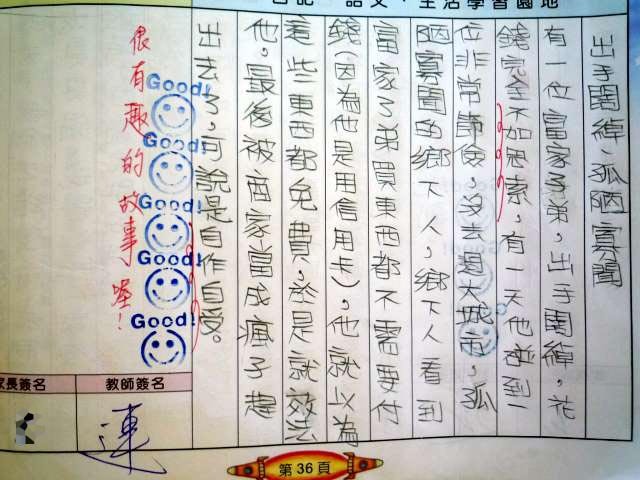 日記、語文、生活學習園地
出手闊綽、孤陋寡聞
有一位富家子弟，出手闊綽，花
錢完全不加思索，有一天他碰到一
位非常節儉，沒去過大城市，孤
陋寡聞的鄉下人，鄉下人看到
富家子弟買東西都不需要付
錢(因為他是用信用卡)，他就以為
這些東西都免費，於是就效法
他，最後被商家當成瘋子趕
出去了，可說是自作自受。
很有趣的故事喔！
Good!
Good!
Good!
Good!
Good!
教師簽名
家長簽名
連
第36頁